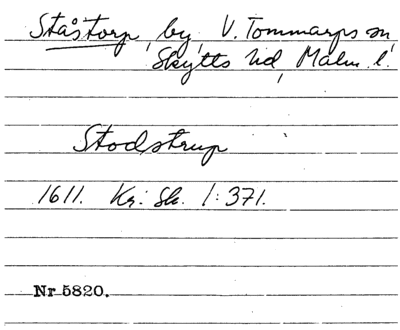 Ståstorp, by, V. Tommarps sn
Skytts hd, Malm. l.
Stodstrup
1611. Kr: Sk. 1:371.
Nr 5820.